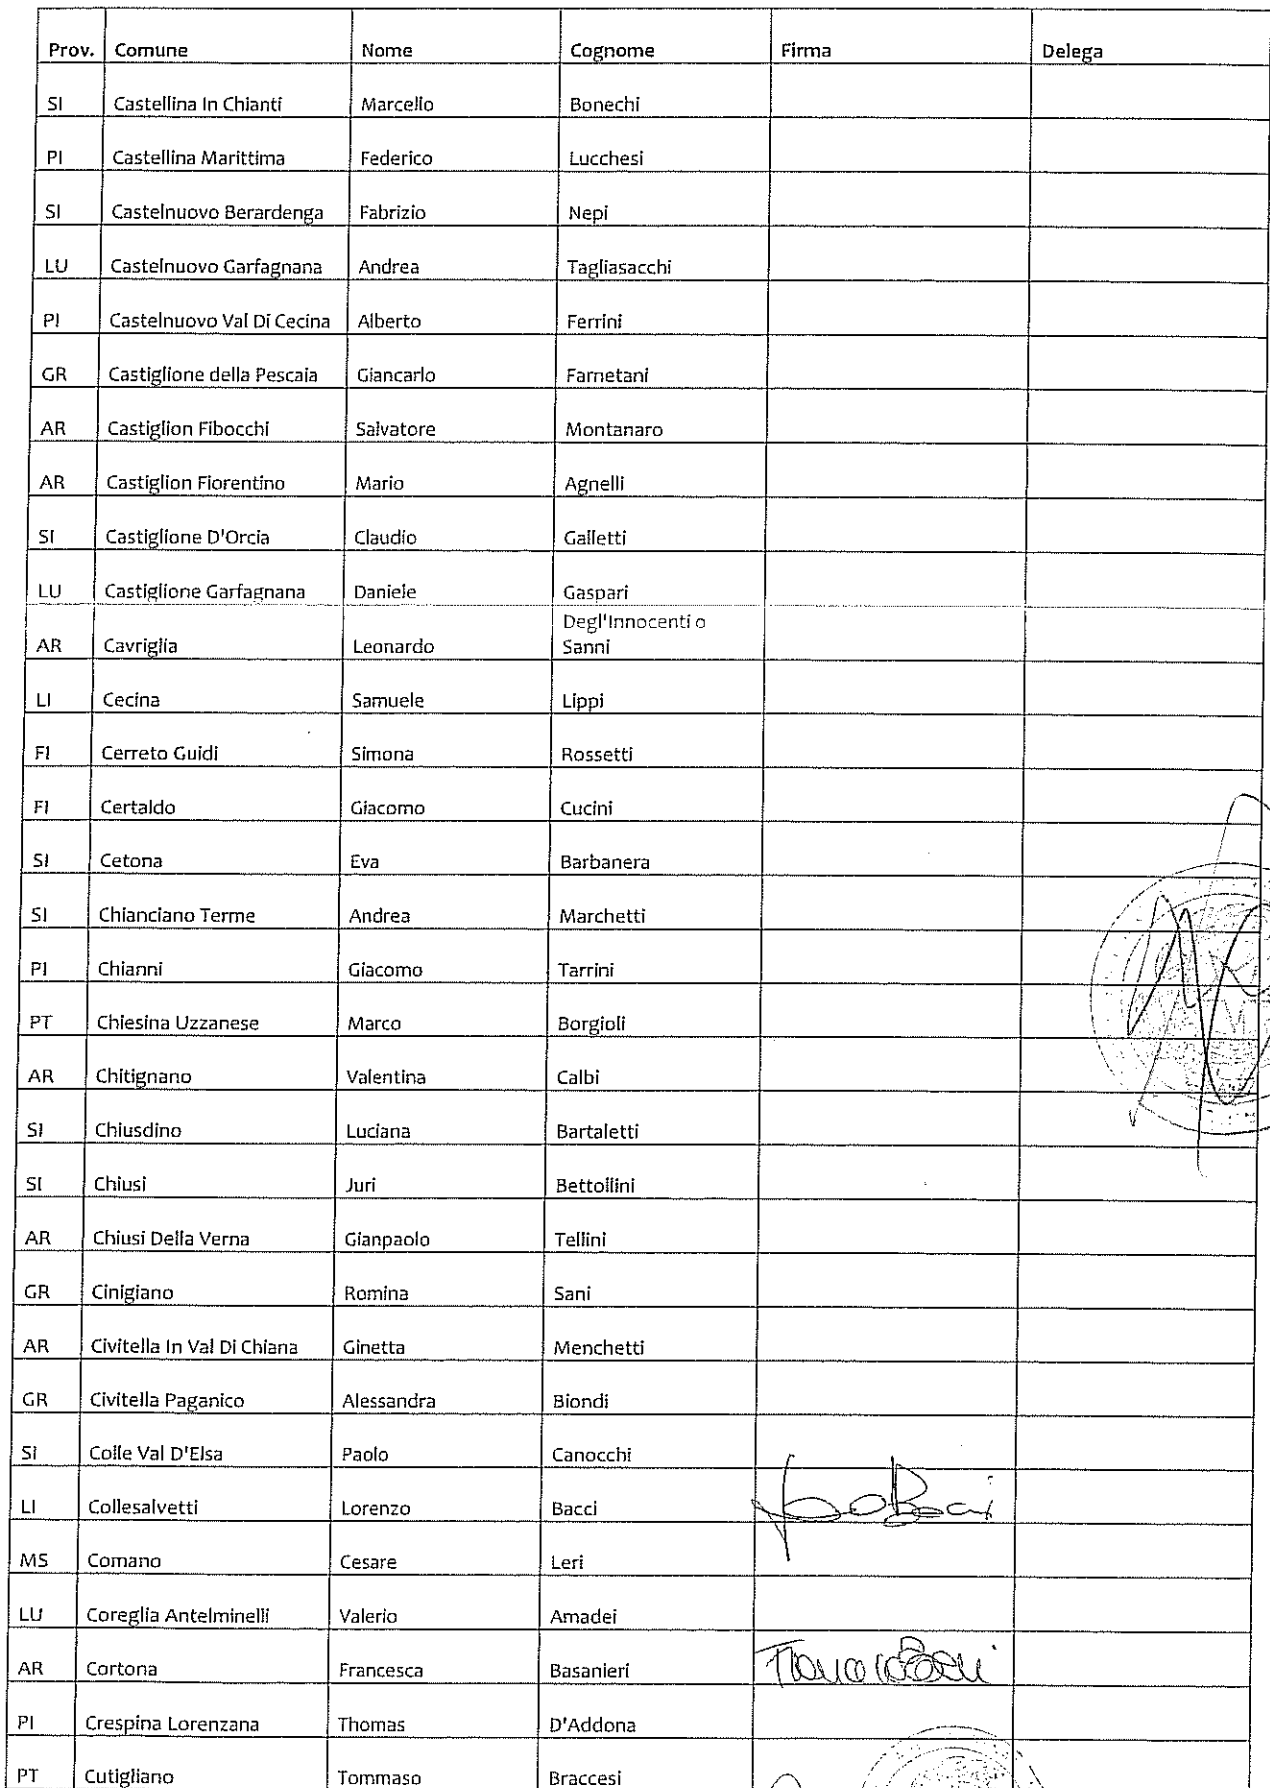 Prov. Comune Nome Cognome Firma Delega
SI Castellina In Chianti Marcello Bonechi
PI Castellina Marittima Federico Lucchesi
SI Castelnuovo Berardenga Fabrizio Nepi
LU Castelnuovo Garfagnana Andrea Tagliasacchi
PI Castelnuovo Val Di Cecina Alberto Ferrini
GR Castiglione della Pescaia Giancarlo Farnetani
AR Castiglion Fibocchi Salvatore Montanaro
AR Castiglion Fiorentino Mario Agnelli
SI Castiglione D'Orcia Claudio Galletti
LU Castiglione Garfagnana Daniele Gaspari
Degl'Innocenti o
AR Cavriglia Leonardo Sanni
LI Cecina Samuele Lippi
FI Cerreto Guidi Simona Rossetti
FI Certaldo Giacomo Cucini
SI Cetona Eva Barbanera
SI Chianciano Terme Andrea Marchetti
PI Chianni Giacomo Tarrini
PT Chiesina Uzzanese Marco Borgioli
AR Chitignano Valentina Calbi
SI Chiusdino Luciana Bartaletti
SI Chiusi Juri Bettollini
AR Chiusi Della Verna Gianpaolo Tellini
GR Cinigiano Romina Sani
AR Civitella In Val Di Chiana Ginetta Menchetti
GR Civitella Paganico Alessandra Biondi
SI Colle Val D'Elsa Paolo Canocchi
LI Collesalvetti Lorenzo Bacci
MS Comano Cesare Leri
LU Coreglia Antelminelli Valerio Amadei
AR Cortona Francesca Basanieri
PI Crespina Lorenzana Thomas D'Addona
PT Cutigliano Tommaso Braccesi